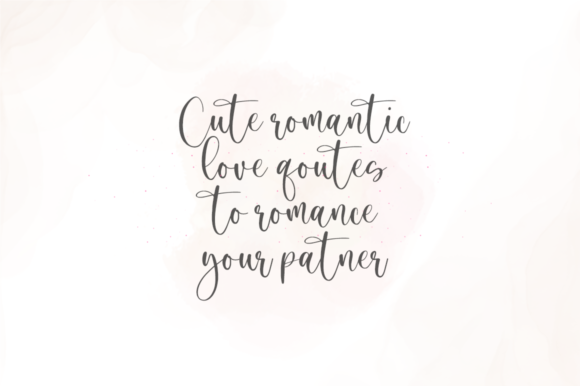 Cute romantic
love qoutes
to romance
your patner